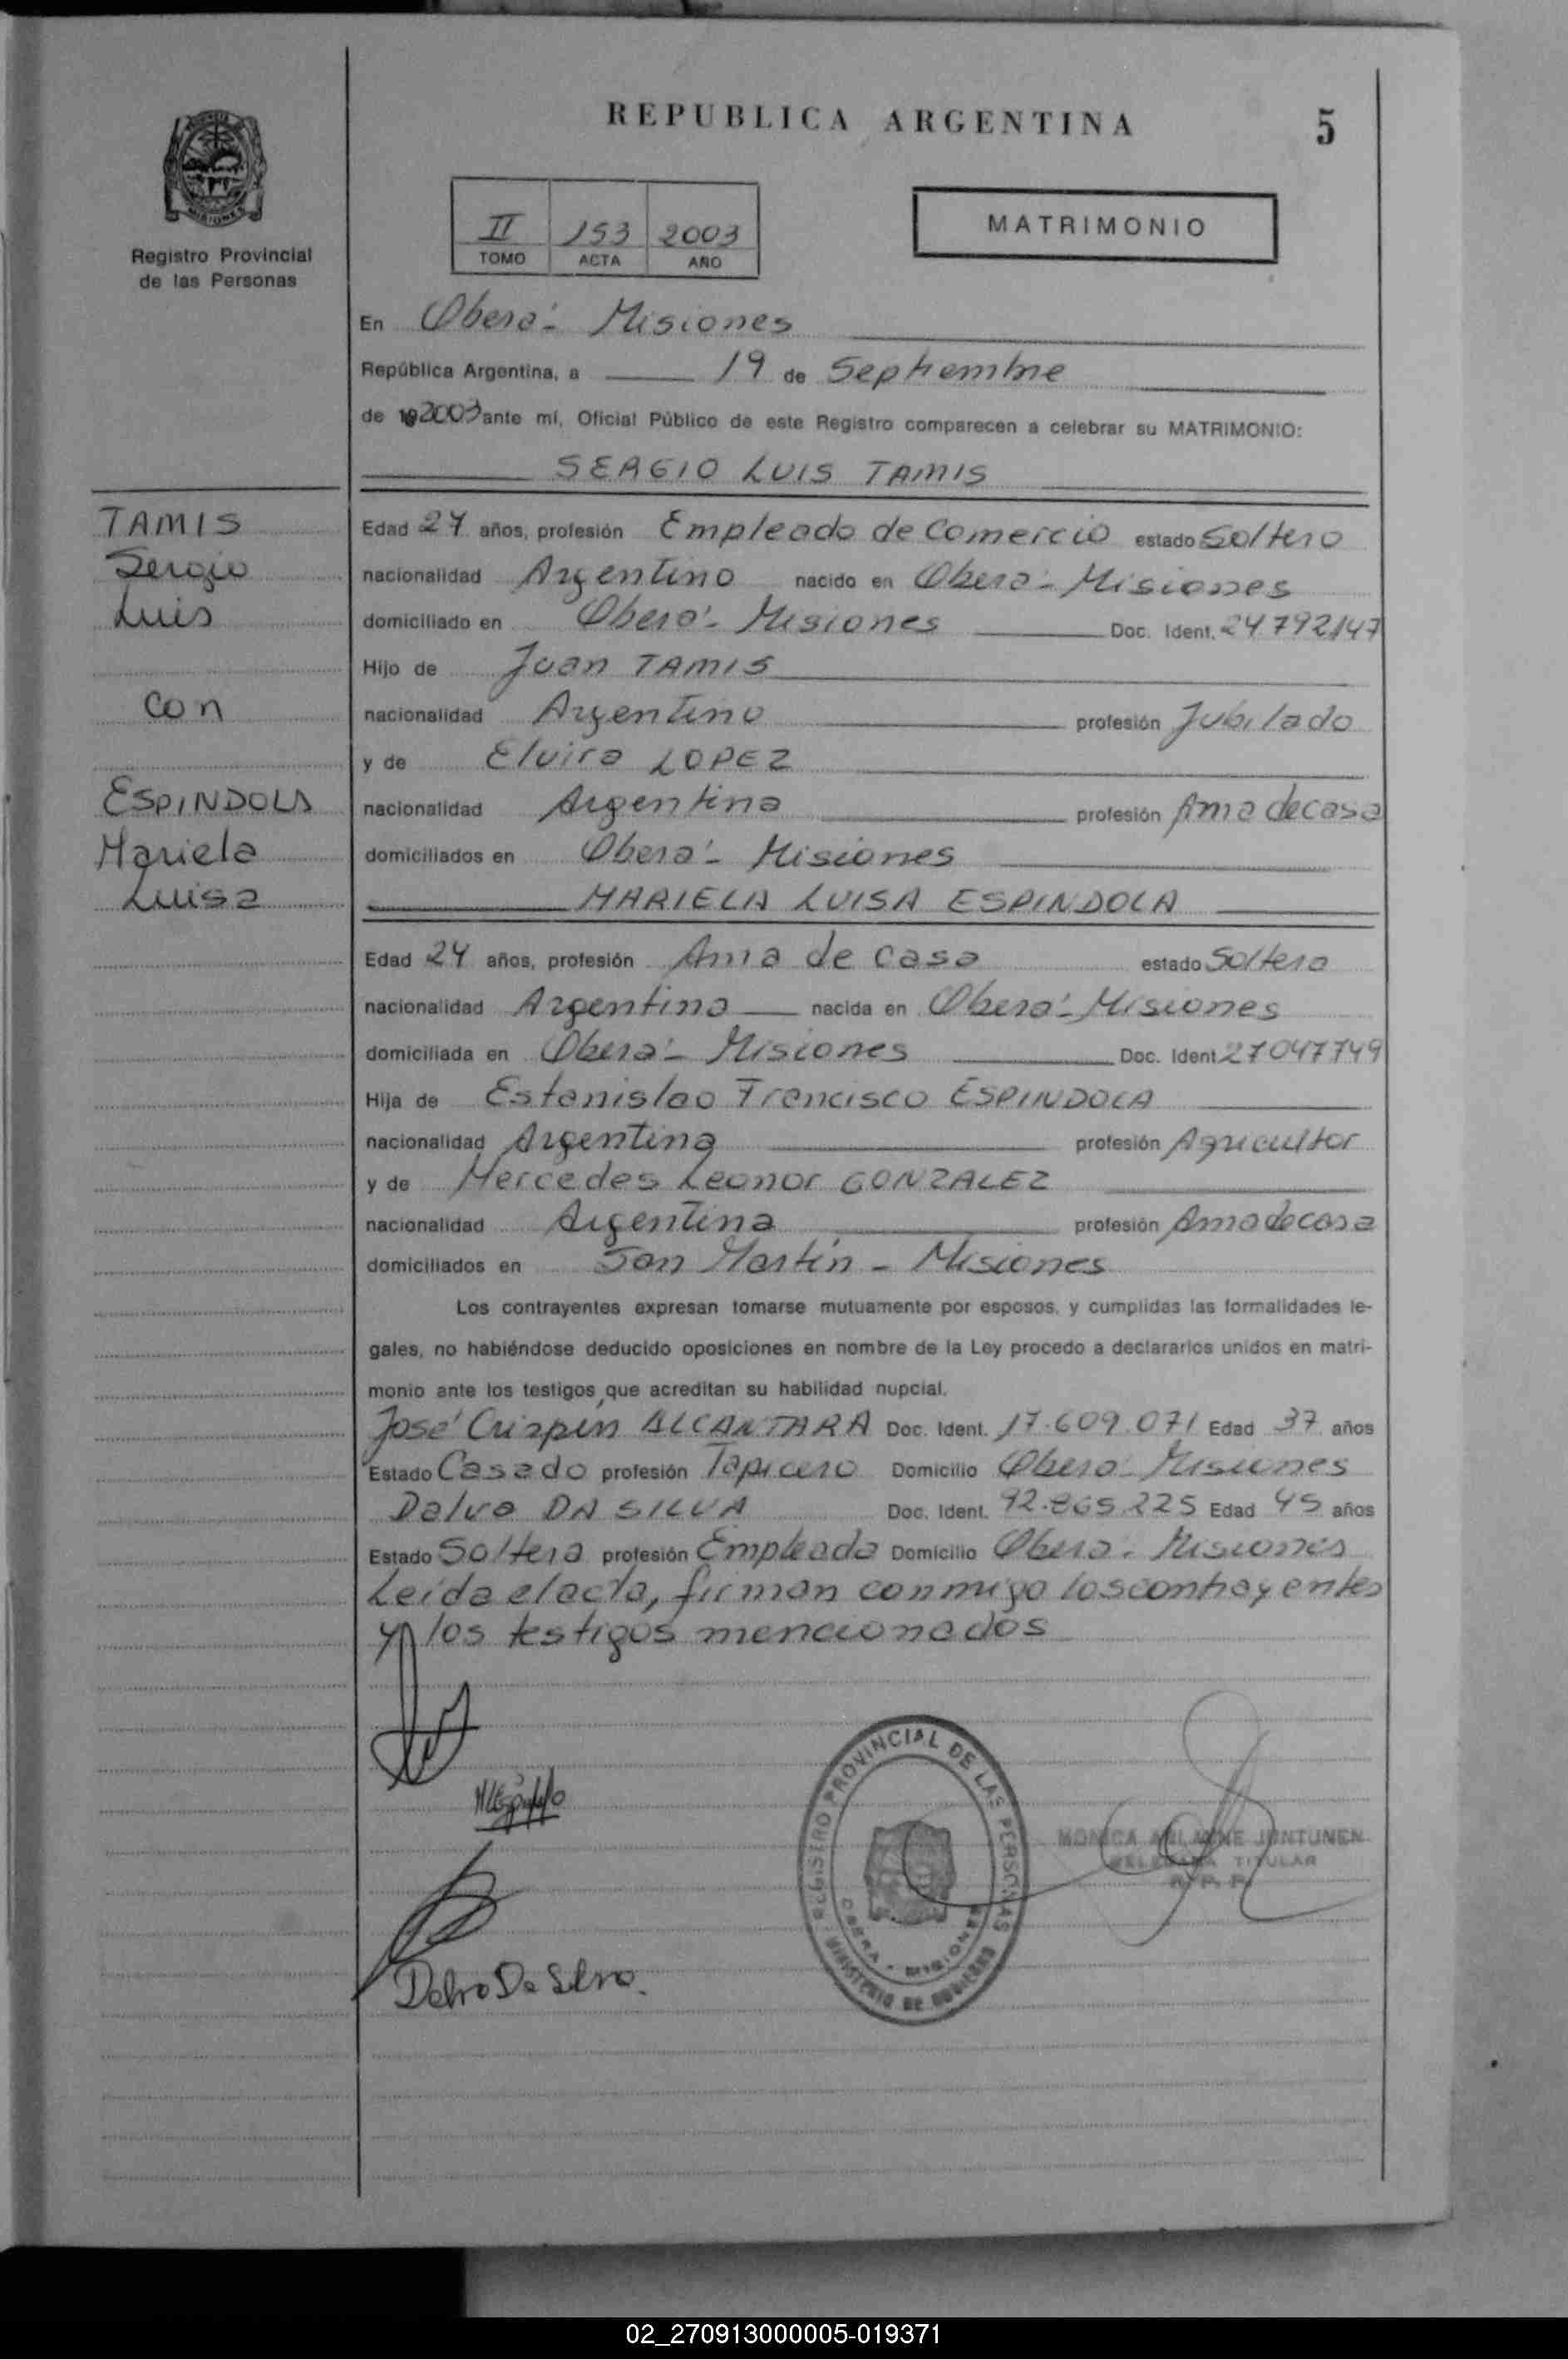 REPUBLICA ARGENTINA
5
MISIONES
Registro Provincial
de las Personas
II 153 2003
TOMO ACTA AÑO
MATRIMONIO
En Oberá - Misiones
República Argentina, a 19 de Septiembre
de 19 2003 ante mí, Oficial Público de este Registro comparecen a celebrar su MATRIMONIO:
SERGIO LUIS TAMIS
TAMIS
Sergio
Luis
con
ESPINDOLA
Mariela
Luisa
Edad 27 años, profesión Empleado de Comercio estado Soltero
nacionalidad Argentino nacido en Oberá - Misiones
domiciliado en Oberá - Misiones Doc. Ident. 24.792147
Hijo de Juan TAMIS
nacionalidad Argentino profesión Jubilado
y de Elvira LOPEZ
nacionalidad Argentina profesión Ama de casa
domiciliados en Oberá - Misiones
MARIELA LUISA ESPINDOLA
Edad 24 años, profesión Ama de casa estado Soltera
nacionalidad Argentina nacida en Oberá - Misiones
domiciliada en Oberá - Misiones Doc. Ident 27047749
Hija de Estanislao Francisco ESPINDOLA
nacionalidad Argentina profesión Agricultor
y de Mercedes Leonor GONZALEZ
nacionalidad Argentina profesión Ama de casa
domiciliados en San Martín - Misiones
Los contrayentes expresan tomarse mutuamente por esposos, y cumplidas las formalidades le-
gales, no habiéndose deducido oposiciones en nombre de la Ley procedo a declararlos unidos en matri-
monio ante los testigos que acreditan su habilidad nupcial.
José Crizpin ALCANTARA Doc. Ident. 17.609.071 Edad 37 años
Estado Casado profesión Tapicero Domicilio Oberá - Misiones
Dalva DA SILVA Doc. Ident. 92.865.225 Edad 45 años
Estado Soltera profesión Empleada Domicilio Oberá - Misiones
Leída el acta, firman conmigo los contrayentes
y los testigos mencionados
Dalva Da Silva.
REGISTRO PROVINCIAL DE LAS PERSONAS
OBERA - MISIONES
MINISTERIO DE GOBIERNO
MONICA JUNTUNEN
DELEGADA TITULAR
R. P. P.
02_270913000005-019371